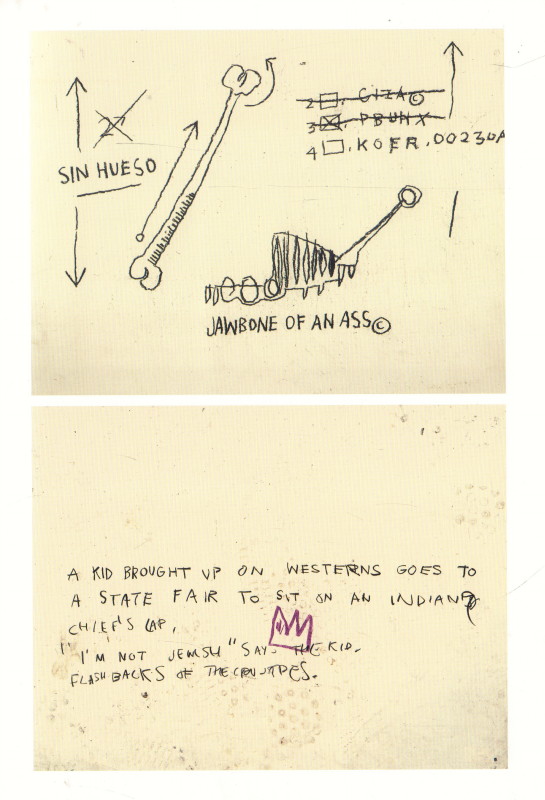 27
SIN HUESO
2 □. GIZA©
3 ☒. PBUNX
4 □. KOER. 00230A
JAWBONE OF AN ASS©
A KID BROUGHT UP ON WESTERNS GOES TO
A STATE FAIR TO SIT ON AN INDIAN
CHIEF'S LAP,
"I'M NOT JEWISH" SAYS THE KID.
FLASHBACKS OF THE